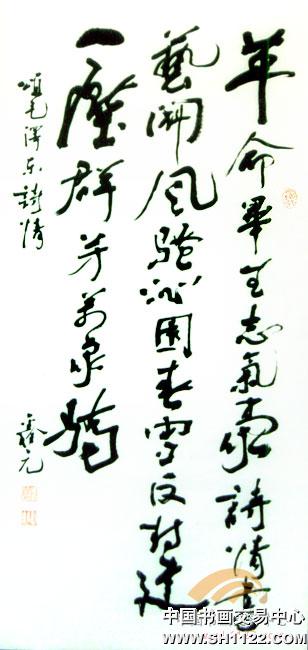 革命畢生志氣豪詩情書
藝開风騷沁園春雪反封建
一壓群芳萬家驕
頌毛澤东詩情
中国书画交易中心
www.SH1122.com